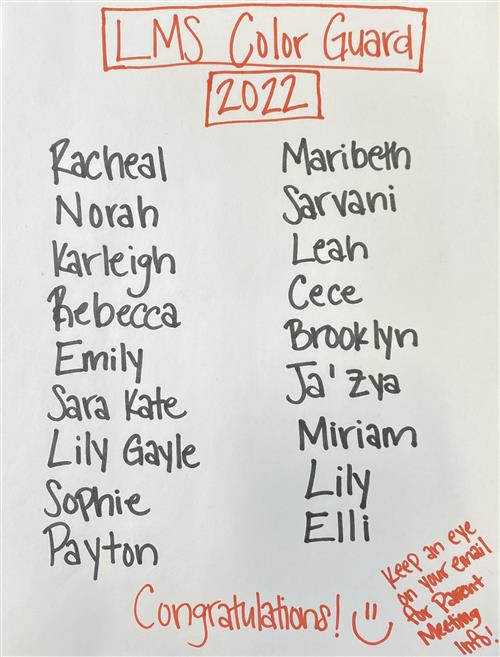 LMS Color Guard
2022
Racheal
Norah
Karleigh
Rebecca
Emily
Sara Kate
Lily Gayle
Sophie
Payton
Maribeth
Sarvani
Leah
Cece
Brooklyn
Ja'Zya
Miriam
Lily
Elli
Congratulations!
Keep an eye
on your email
for Parent
Meeting
Info!